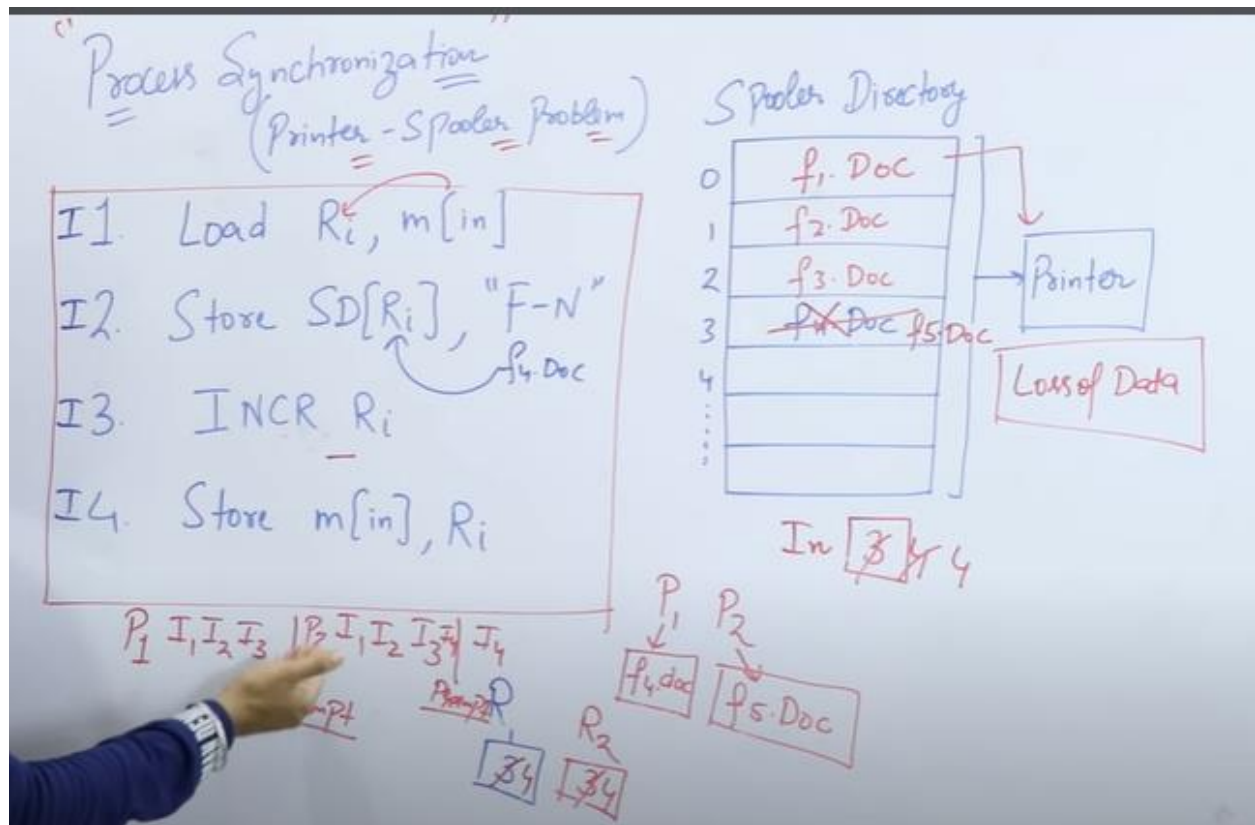 "Process Synchronization"
(Printer-Spooler Problem)
I1. Load Ri, m[in]
I2. Store SD[Ri], "F-N"
f4.Doc
I3. INCR Ri
I4. Store m[in], Ri
P1 I1 I2 I3 | P2 I1 I2 I3 I4 | I4
Preempt
R1
3 4
R2
3 4
Spooler Directory
0 f1.Doc
1 f2.Doc
2 f3.Doc
3 f4.Doc f5.Doc
4
Printer
Loss of Data
In 3 4 4
P1 P2
f4.doc f5.Doc